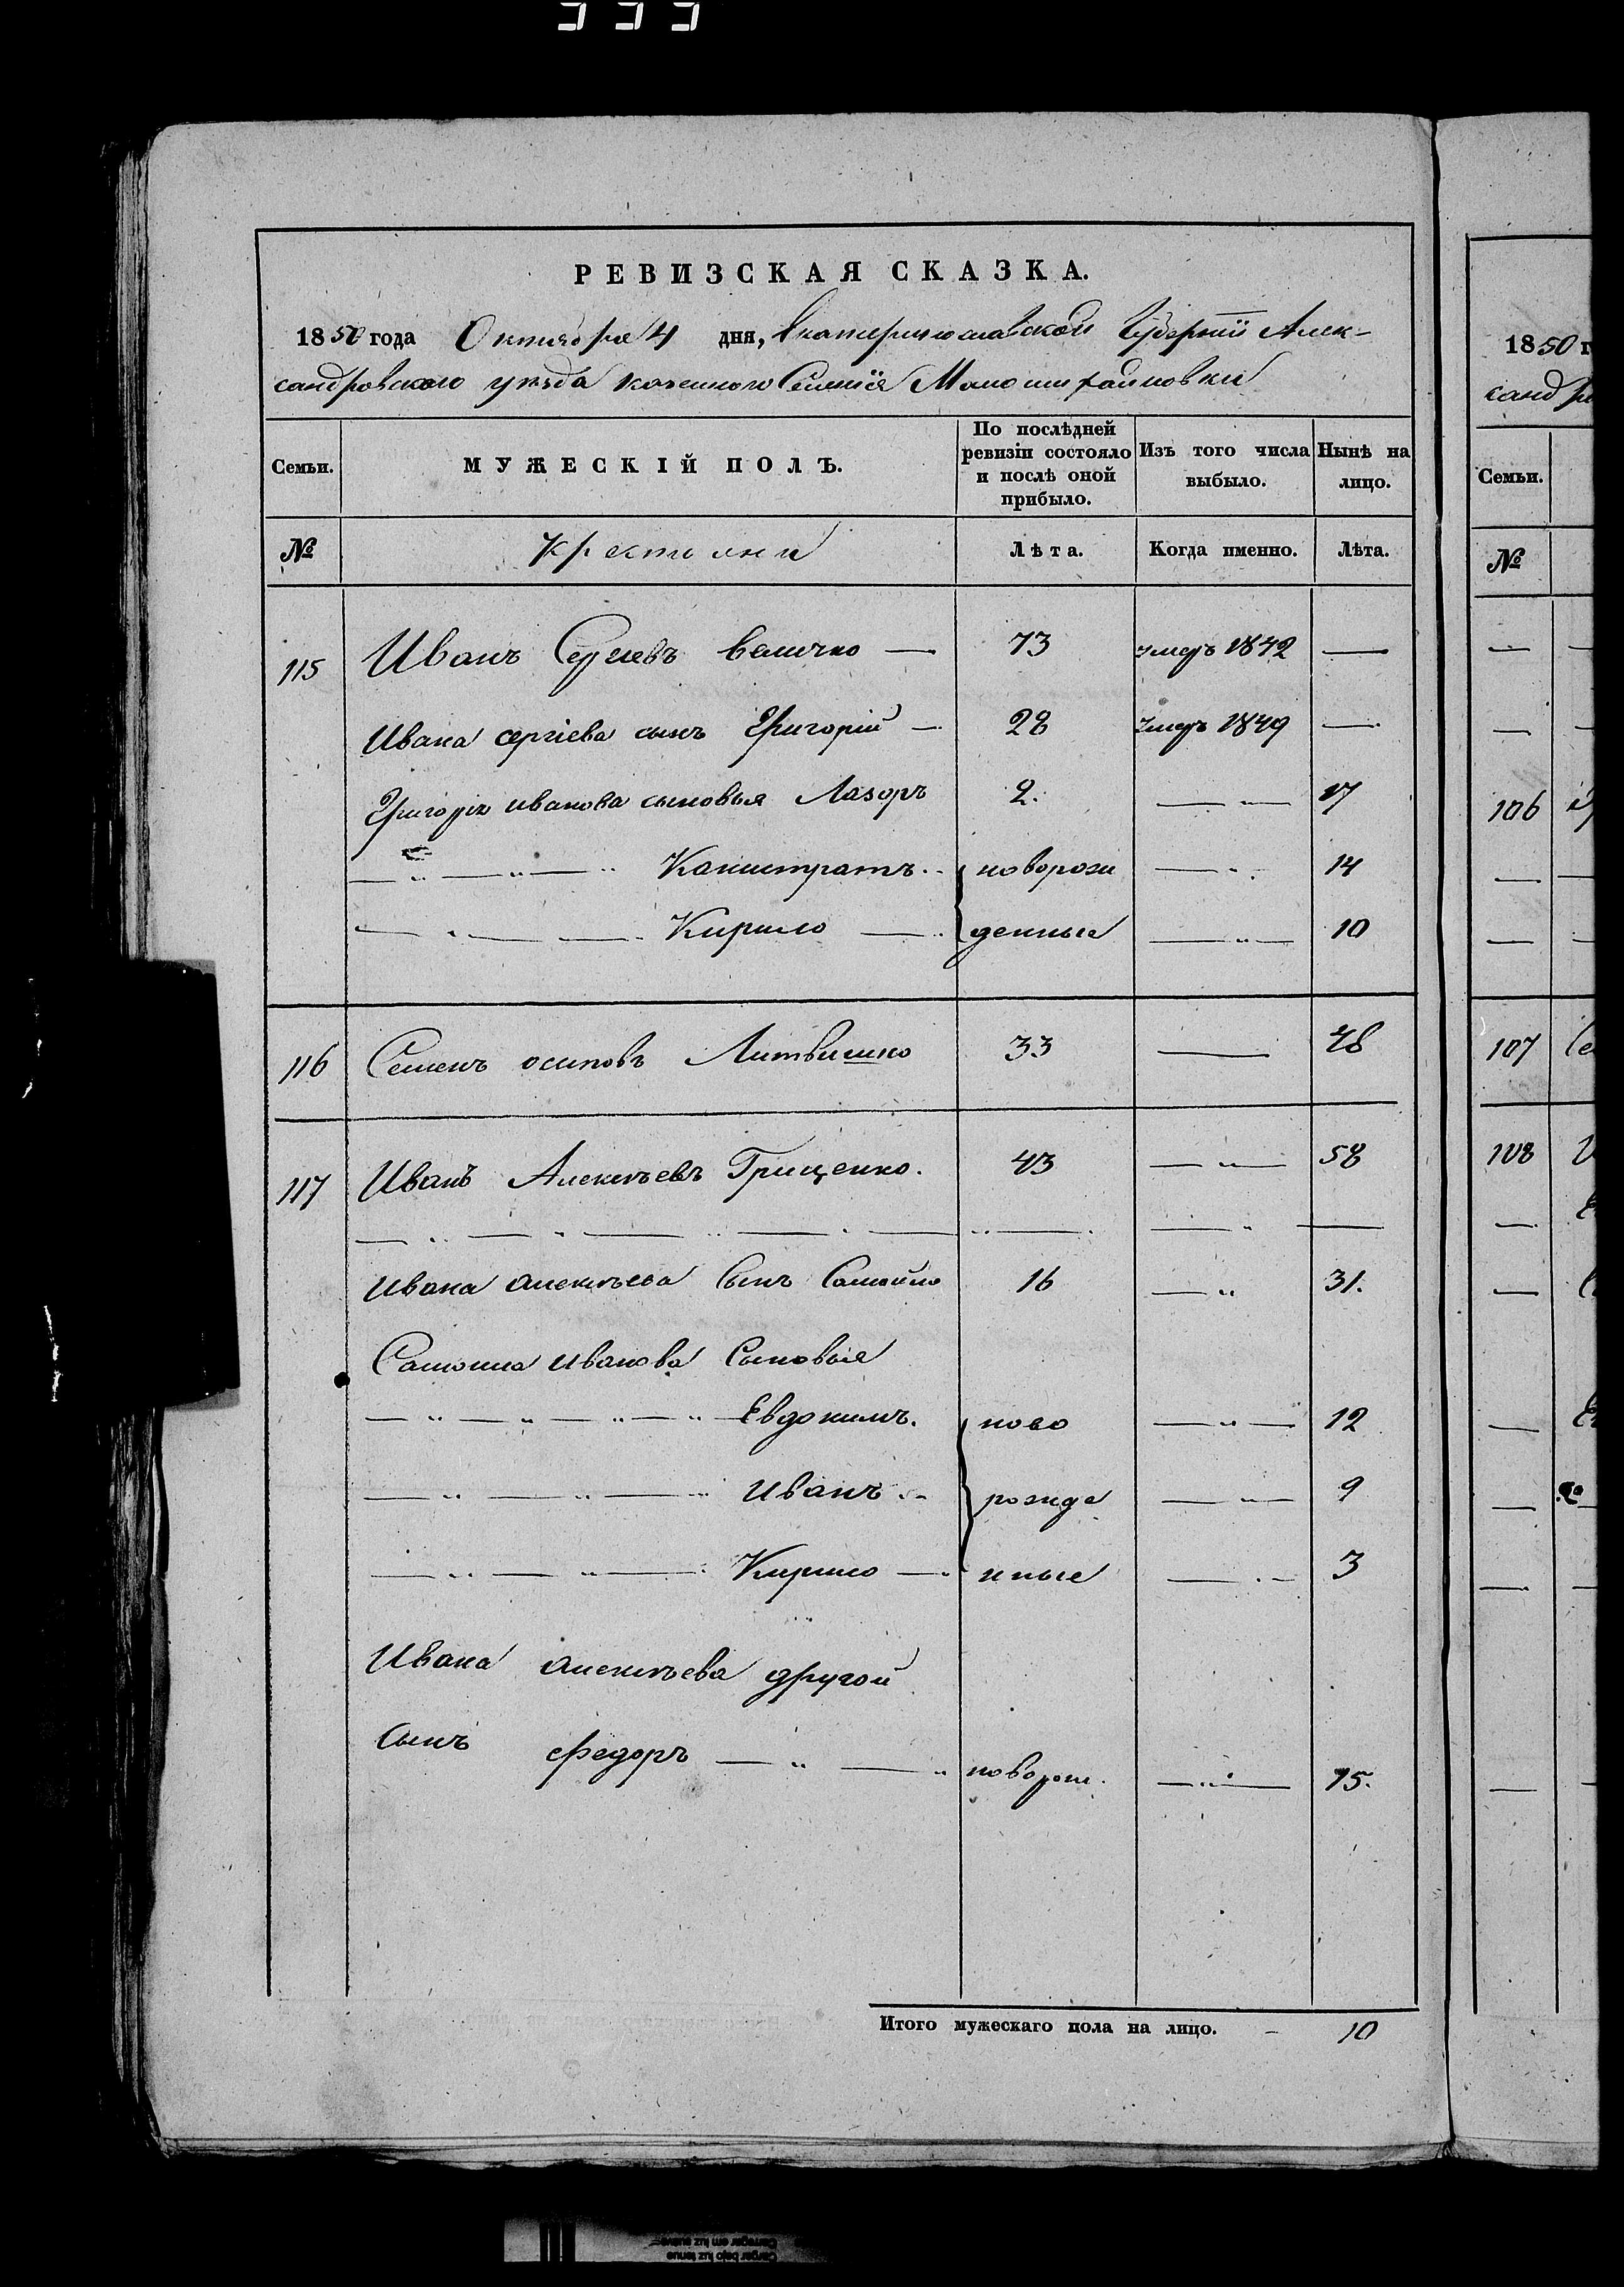 333
РЕВИЗСКАЯ СКАЗКА.
1850 года Октября 4 дня, Екатеринославской Губернии Алек-
сандровского уезда казенного Селенія Маломихайловки
Семьи. МУЖЕСКІЙ ПОЛЪ. По послѣдней ревизіи состояло и послѣ оной прибыло. Изъ того числа выбыло. Нынѣ на лицо.
№ Крестьяни Лѣта. Когда именно. Лѣта.
115 Иванъ Сергіевъ Величко — 73 умеръ 1842 —
Ивана сергіева сынъ Григорій — 28 умеръ 1849 —
Григорія иванова сыновья Лазоръ 2. — „ — 17
— „ — „ — „ Каистратъ. новорож — „ 14
— „ — — Кирило — денные — „ — 10
116 Семенъ осиповъ Литвишко 33 — 48
117 Иванъ Алексѣевъ Грищенко. 43 — „ — 58
— „ — „ — „ — „ — „ — — „ —
Ивана алексѣева Сынъ Самойло 16 — „ 31.
Самоила иванова Сыновья
— „ — „ — „ — „ Евдокимъ. ново — „ — 12
— „ — „ — „ Иванъ рожде — „ — 9
— „ — „ — Кирило — нные — „ — 3
Ивана алексѣева другой
Сынъ федоръ — „ — „ поворож. — „ — 15.
Итого мужескаго пола на лицо. - 10
1850 г
санд
Семьи.
№
106
107 Се
108